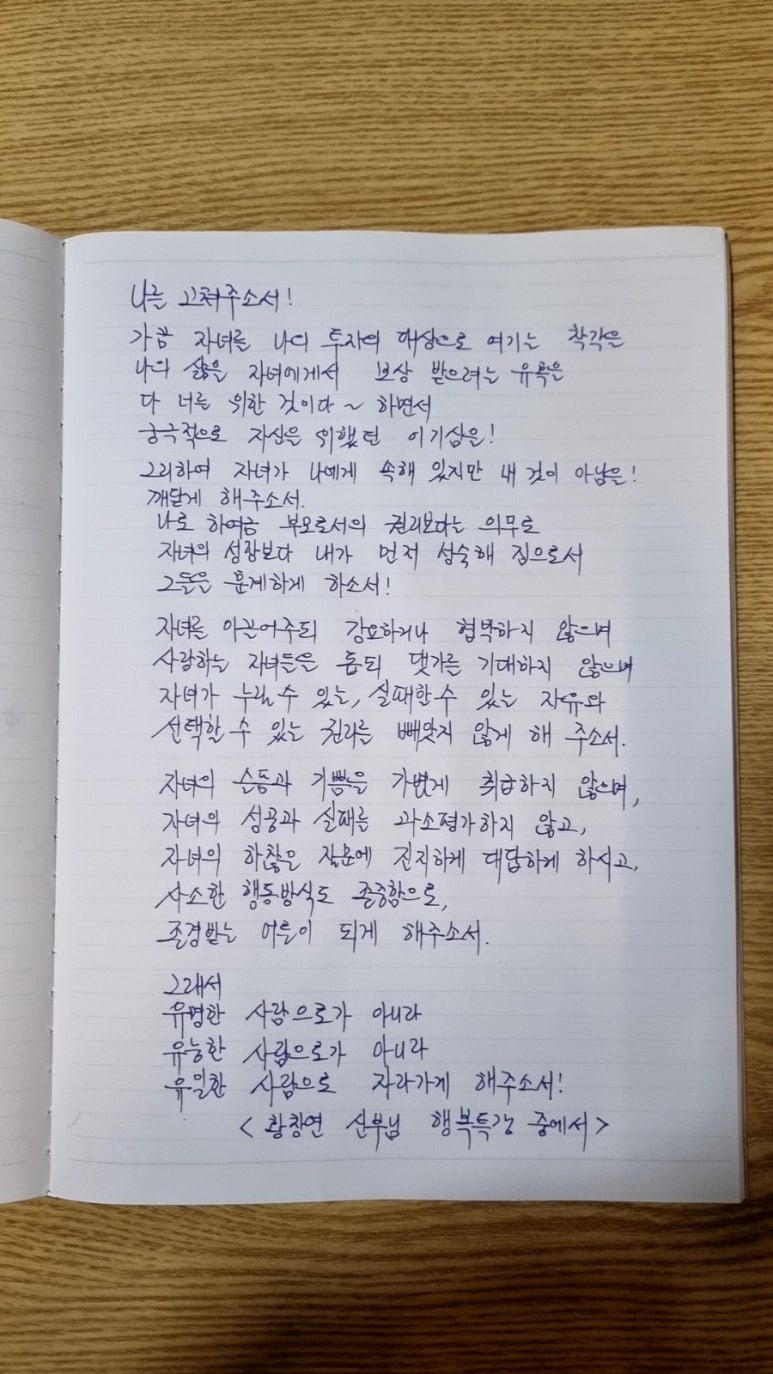 나를 고쳐주소서!
가끔 자녀를 나의 투자의 대상으로 여기는 착각은
나의 삶을 자녀에게서 보상 받으려는 유혹은
다 너를 위한 것이다~ 하면서
궁극적으로 자신을 위했던 이기심을!
그리하여 자녀가 나에게 속해 있지만 내 것이 아님을!
깨닫게 해주소서.
나로 하여금 부모로서의 권리보다는 의무로
자녀의 성장보다 내가 먼저 성숙해 짐으로서
그들을 훈계하게 하소서!
자녀를 이끌어주되 강요하거나 협박하지 않으며
사랑하는 자녀들을 돕되 댓가를 기대하지 않으며
자녀가 누릴 수 있는, 실패할 수 있는 자유와
선택할 수 있는 권리를 빼앗지 않게 해 주소서.
자녀의 슬픔과 기쁨을 가볍게 취급하지 않으며,
자녀의 성공과 실패를 과소평가하지 않고,
자녀의 하찮은 질문에 진지하게 대답하게 하시고,
사소한 행동방식도 존중함으로,
존경받는 어른이 되게 해주소서.
그래서
유명한 사람으로가 아니라
유능한 사람으로가 아니라
유일한 사람으로 자라가게 해주소서!
<황창연 신부님 행복특강 중에서>